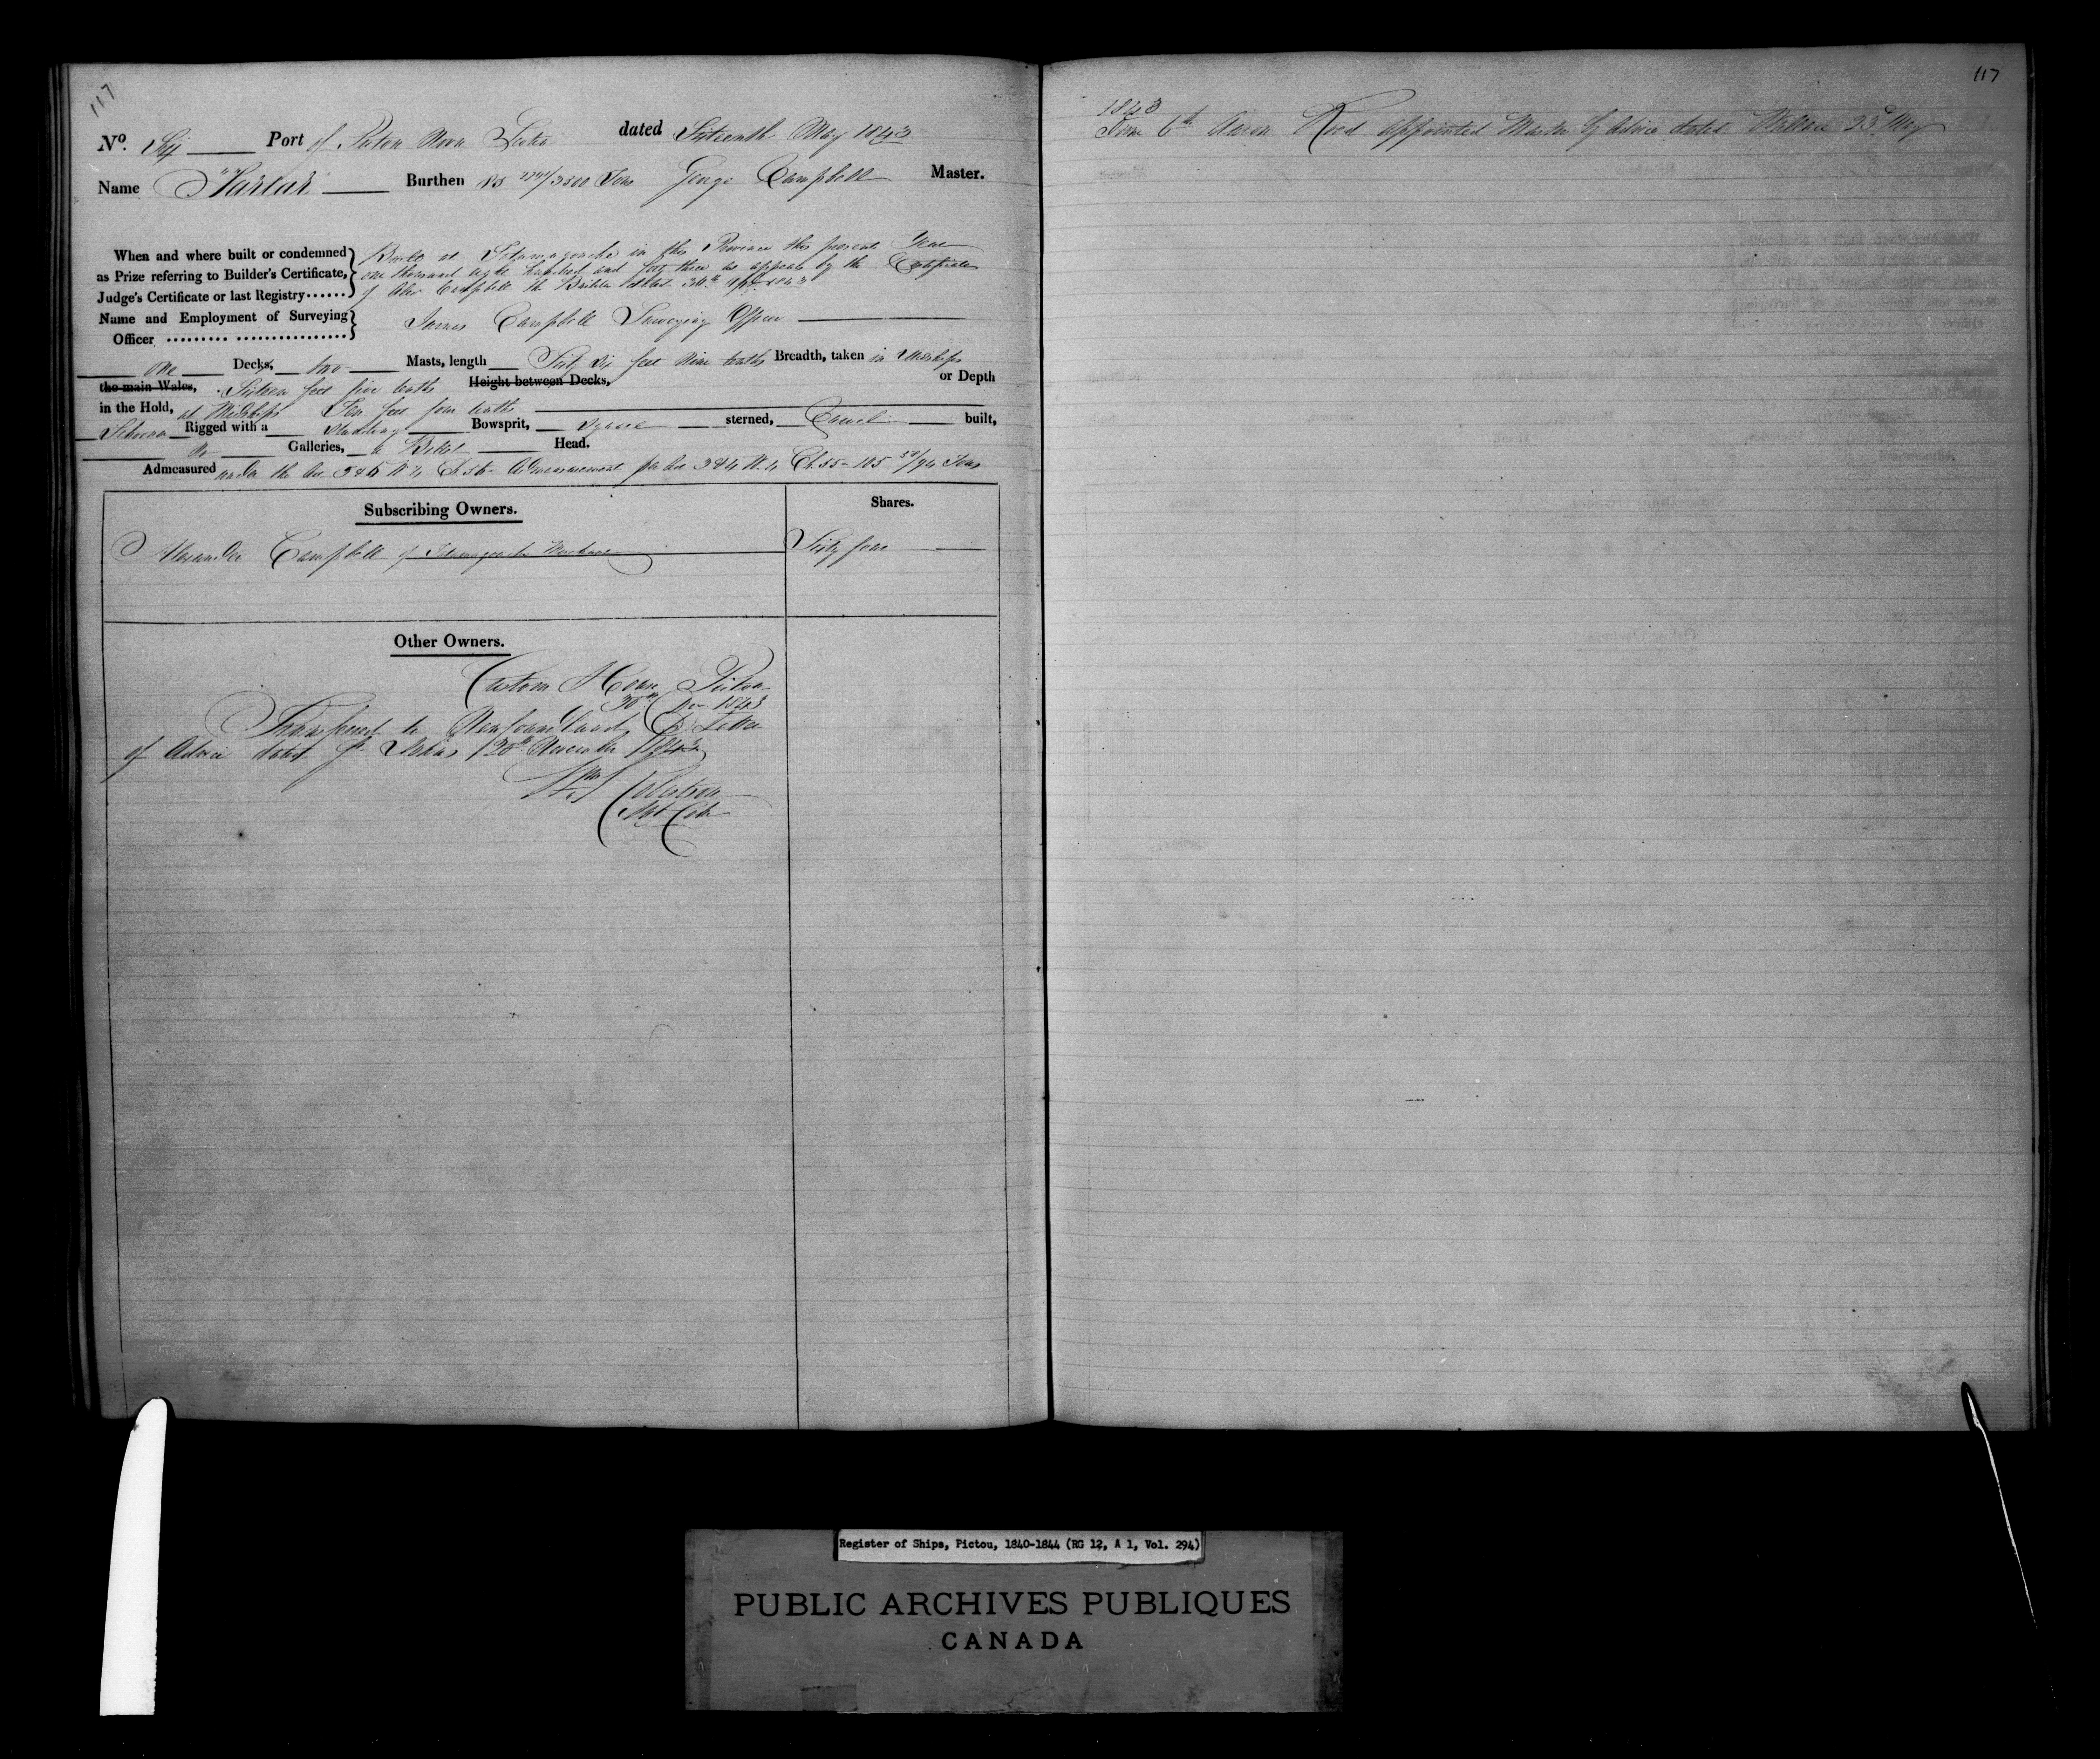 117
No. Six Port of Pictou Nova Scotia dated Sixteenth May 1843
Name "Tartar" Burthen 85 /3500 Tons George Campbell Master.
When and where built or condemned as Prize referring to Builder's Certificate, Judge's Certificate or last Registry
Built at Tatamagouche in this Province this present Year
one thousand eight hundred and forty three as appears by the Certificate
of Alexr Campbell the Builder dated 30th April 1843
Name and Employment of Surveying Officer
James Campbell Surveying Officer
One Decks, two Masts, length Sixty six feet nine tenths Breadth, taken in Midships
the main Wales, Sixteen feet five tenths Height between Decks, or Depth
in the Hold, at Midships Ten feet four tenths
Schooner Rigged with a standing Bowsprit, square sterned, Carvel built,
No Galleries, a Billet Head.
Admeasured under the Act 5 & 6 W 4 Ch 56 Admeasurement per Act 3 & 4 W. 4 Ch. 55 - 105 /94 Tons
Subscribing Owners. Shares.
Alexander Campbell of Tatamagouche Merchant Sixty four
Other Owners.
Custom House Pictou
30th Dec 1843
Transferred to Newfoundland P Letter
of Advice dated St Johns 20th November 1843
117
1843
June 6th Aaron Rood appointed Master by Advice dated Wallace 23d May
Register of Ships, Pictou, 1840-1844 (RG 12, A 1, Vol. 294)
PUBLIC ARCHIVES PUBLIQUES
CANADA